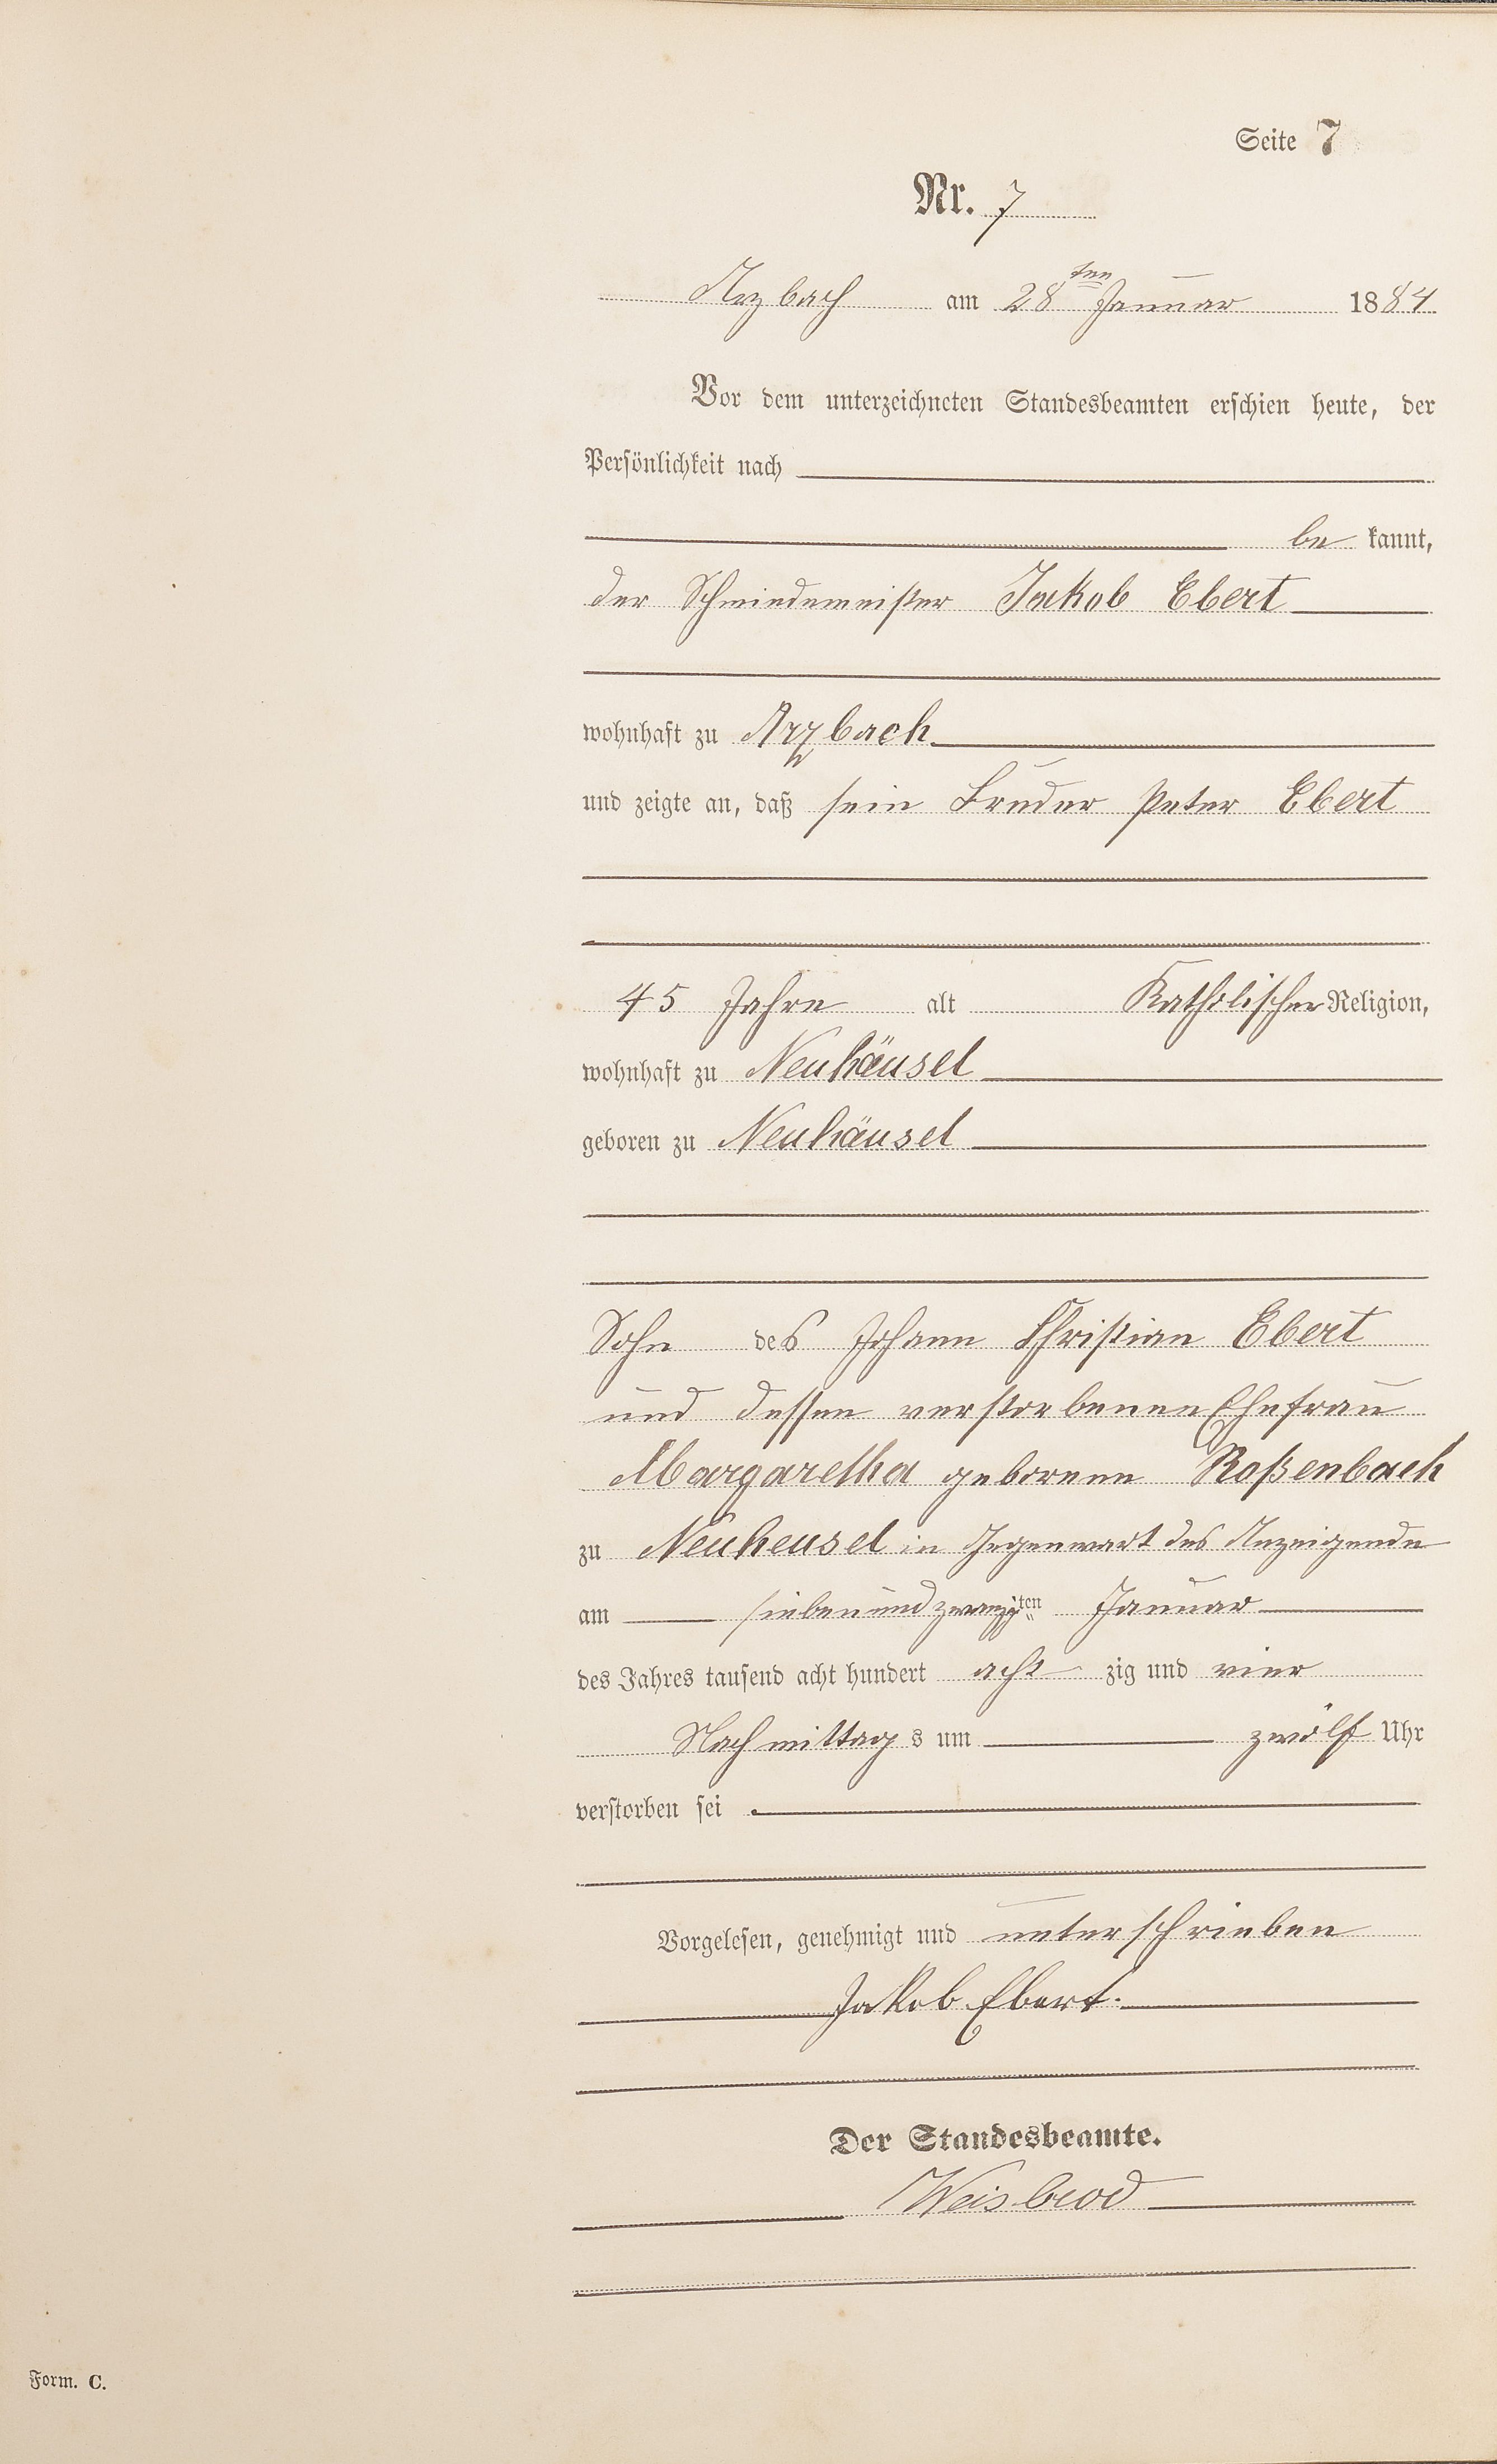 Seite 7
Nr. 7
Arzbach am 28ten Januar 1884
Vor dem unterzeichneten Standesbeamten erschien heute, der
Persönlichkeit nach
be kannt,
der Schmiedemeister Jakob Ebert
wohnhaft zu Arzbach
und zeigte an, daß sein Bruder Peter Ebert
45 Jahre alt Katholischer Religion,
wohnhaft zu Neuhäusel
geboren zu Neuhäusel
Sohn des Johann Christian Ebert
und dessen verstorbenen Ehefrau
Margaretha geborene Roßenbach
zu Neuheusel in Gegenwart des Anzeigende
am siebenundzwanzigten Januar
des Jahres tausend acht hundert acht zig und vier
Nachmittag s um zwölf Uhr
verstorben sei
Vorgelesen, genehmigt und unterschrieben
Jakob Ebert.
Der Standesbeamte.
Weisbrod
Form. C.